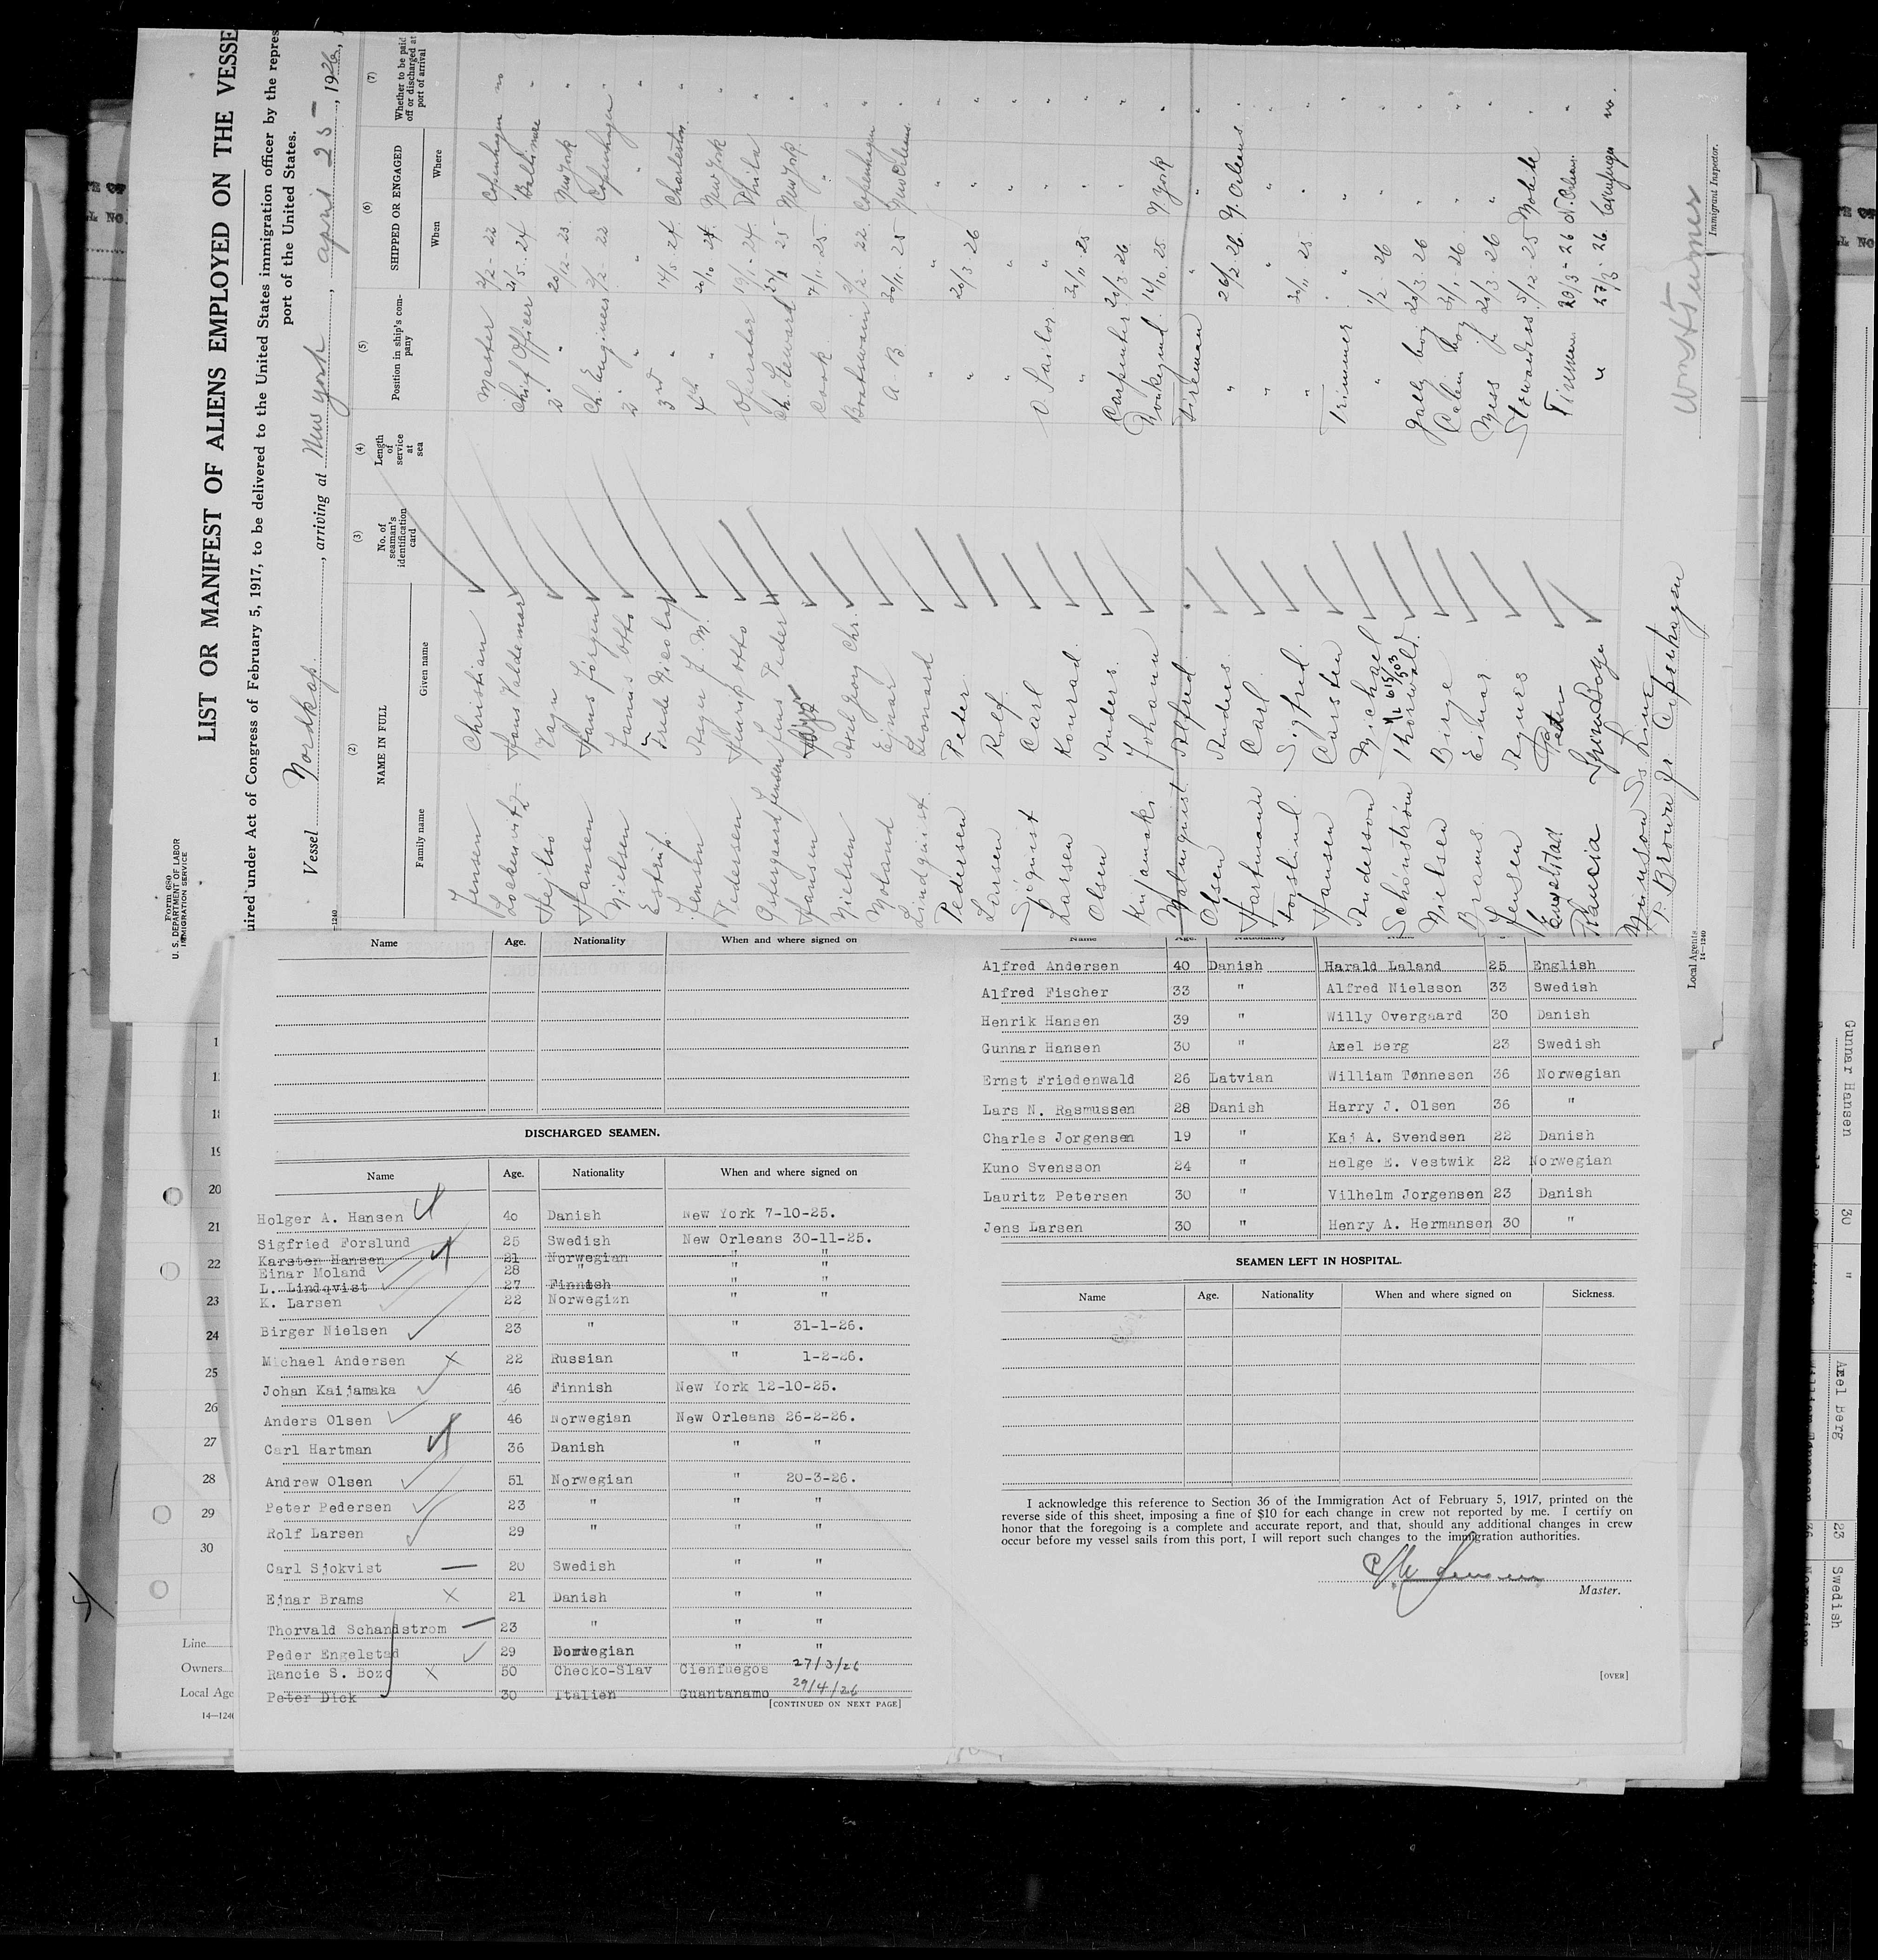 Form 680
U. S. DEPARTMENT OF LABOR
IMMIGRATION SERVICE
LIST OR MANIFEST OF ALIENS EMPLOYED ON THE VESSE
uired under Act of Congress of February 5, 1917, to be delivered to the United States immigration officer by the repres
port of the United States.
Vessel Nordkap., arriving at New York, april 25, 1926,
(2) (3) (4) (5) (6) (7)
NAME IN FULL No. of seaman's identification card Length of service at sea Position in ship's company SHIPPED OR ENGAGED Whether to be paid off or discharged at port of arrival
Family name Given name When Where
Jensen Christian Master 2/2-22 Copenhagen no
Hans Valdemar Chief Officer 21/5-24 Baltimore "
Hejlsø Vagn 2 " 20/12-23 New York "
Hansen Hans Jørgen Ch. Engineer 2/2-22 Copenhagen "
Nielsen Jannis Otto 2 " " "
Estrup Frede Nicolaj 3rd " 14/5-24 Charleston "
Jensen Aage J. M. 4th " New York "
Pedersen Otto Operator Phila "
Ostergaard Jensen Jens Peder Ch. Steward New York "
Hansen Cook 7/11-25 " "
Nielsen Axel Georg Chr. Boatswain 2/2-22 Copenhagen "
Moland Ejnar A B 30/11-25 New Orleans "
Lindquist Leonard " " " "
Pedersen Peter " 20/3-26 " "
Larsen Rolf " " " "
Sjöquist Carl O. Sailor " " "
Larsen Konrad " 30/11-25 " "
Olsen Anders Carpenter 20/3-26 " "
Kujamaki Johann Donkeymd. 14/10-25 N. York "
Malmquist Alfred Fireman " " "
Olsen Andres " 26/2-26 N. Orleans "
Hartmann Carl " " " "
Forslund Sigfred " 30/11-25 " "
Hansen Carsten Trimmer " " "
Anderson Michael " 1/2 26 " "
Schönström Thorwald Gally boy 20/3-26 " "
Nielsen Birge Cabin boy 31/1-26 " "
Brams Eijnar Mess jr 20/3-26 " "
Jensen Agnes Stewardess 5/12 25 Mobile "
Engelstad Peder Fireman 20/3-26 N. Orleans "
Rancia Spiro Bozo " 27/3-26 Cienfuegos no.
Munson SS Line
F. Brown Jr. Copenhagen
Local Agents
14—1240
Immigrant Inspector.
Name Age. Nationality When and where signed on
DISCHARGED SEAMEN.
Name Age. Nationality When and where signed on
Holger A. Hansen 40 Danish New York 7-10-25.
Sigfried Forslund 25 Swedish New Orleans 30-11-25.
Karsten Hansen 21 Norwegian " "
Einar Moland 28 " " "
L. Lindqvist 27 Finnish " "
K. Larsen 22 Norwegian " "
Birger Nielsen 23 " " 31-1-26.
Michael Andersen 22 Russian " 1-2-26.
Johan Kaijamaka 46 Finnish New York 12-10-25.
Anders Olsen 46 Norwegian New Orleans 26-2-26.
Carl Hartman 36 Danish " "
Andrew Olsen 51 Norwegian " 20-3-26.
Peter Pedersen 23 " " "
Rolf Larsen 29 " " "
Carl Sjokvist 20 Swedish " "
Ejnar Brams 21 Danish " "
Thorvald Schandstrom 23 " " "
Peder Engelstad 29 Norwegian " "
Rancie S. Bozo 50 Checko-Slav Cienfuegos 27/3/26
Peter Dick 30 Italien Guantanamo 29/4/26
[CONTINUED ON NEXT PAGE]
Name Age. Nationality Name
Alfred Andersen 40 Danish Harald Laland 25 English
Alfred Fischer 33 " Alfred Nielsson 33 Swedish
Henrik Hansen 39 " Willy Overgaard 30 Danish
Gunnar Hansen 30 " Axel Berg 23 Swedish
Ernst Friedenwald 26 Latvian William Tønnesen 36 Norwegian
Lars N. Rasmussen 28 Danish Harry J. Olsen 36 "
Charles Jorgensen 19 " Kaj A. Svendsen 22 Danish
Kuno Svensson 24 " Helge E. Vestwik 22 Norwegian
Lauritz Petersen 30 " Vilhelm Jorgensen 23 Danish
Jens Larsen 30 " Henry A. Hermansen 30 "
SEAMEN LEFT IN HOSPITAL.
Name Age. Nationality When and where signed on Sickness.
I acknowledge this reference to Section 36 of the Immigration Act of February 5, 1917, printed on the
reverse side of this sheet, imposing a fine of $10 for each change in crew not reported by me. I certify on
honor that the foregoing is a complete and accurate report, and that, should any additional changes in crew
occur before my vessel sails from this port, I will report such changes to the immigration authorities.
Master.
[OVER]
19
20
21
22
23
24
25
26
27
28
29
30
Line
Owners
Local Age
14—1240
Gunnar Hansen 30 " Axel Berg 23 Swedish